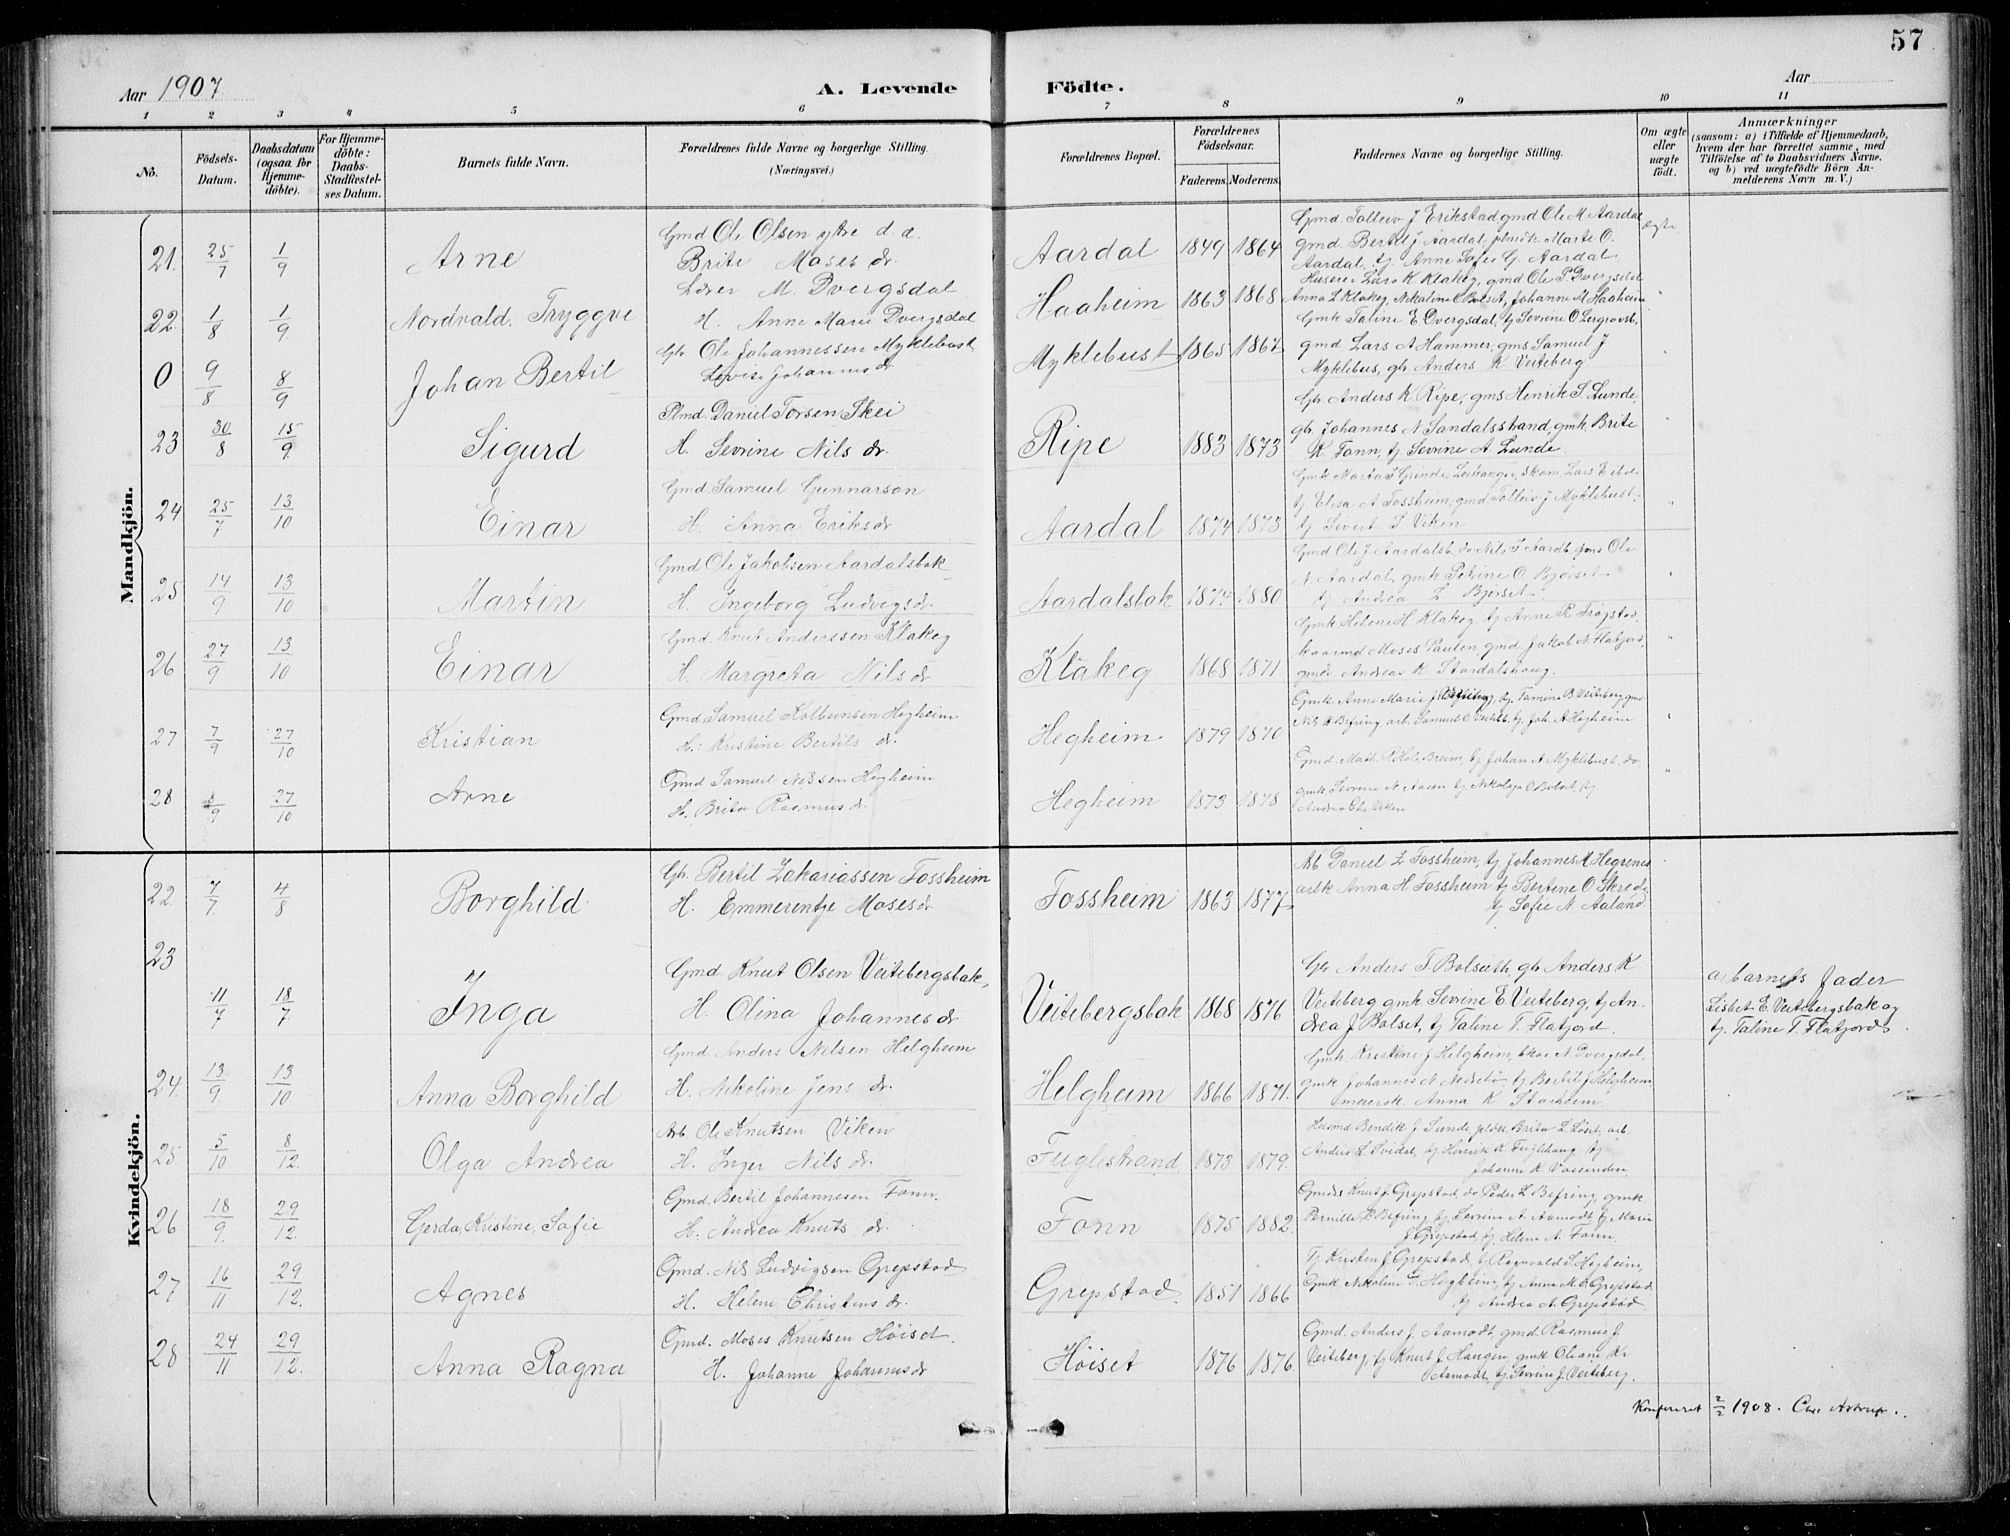 57
Aar 1907 A. Levende Födte. Aar
1 2 3 4 5 6 7 8 9 10 11
No. Födsels-Datum. Daabsdatum (ogsaa for Hjemme-döbte). For Hjemme-döbte: Daabs-Stadfæstel-ses Datum. Barnets fulde Navn. Forældrenes fulde Navne og borgerlige Stilling. (Næringsvei.) Forældrenes Bopæl. Forældrenes Födselsaar. Faderens. Moderens. Faddernes Navne og borgerlige Stilling. Om ægte eller uægte födt. Anmærkninger (saasom: a) i Tilfælde af Hjemmedaab, hvem der har forrettet samme, med Tilföielse af to Daabsvidners Navne, og b) ved uægtefödte Börn An-melderens Navn m. V.)
Mandkjön.
21. 25/7 1/9 Arne
Gmd Ole Olsen ytre d. a.
Brite Moses dr.
Aardal 1849 1864
Gmd. Tolleiv J Erikstad, gmd Ole M Aardal
gmd. Bertil J Aardal, Marte O.
Aardal, tj Anne Sofie G. Aardal
ægte
22. 1/8 1/9 Nordvald. Tryggve
Lærer M. Dvergsdal
H. Anne Marie Dvergsdal
Haaheim 1863 1868
Lars K Klakeg, gmd Ole P Dvergsdal
Anna L Klakeg, Nikoline O Bolset, Johanne M Haaheim
0 9/8 8/9 Johan Bertil
Gbr Ole Johannessen Myklebust
Lovise Johannes dr
Myklebust 1865 1867
Gmk Taline E Dvergsdal, tj Sevrine O
gmd Lars A Hammer, gms Samuel J
Myklebus, gb. Anders K Veiteberg
23 30/8 15/9 Sigurd
Plmd. Daniel Torsen Skei
H. Sevrine Nils dr.
Ripe 1883 1873
Gb Anders K Ripe, gms Henrik S Lunde,
gb. Johannes N Sandalsstrand, gmk. Brite
K. Fonn, tj. Sevrine A. Lunde.
24 25/7 13/10 Einar
Gmd Samuel Gunnarson
H. Anna Eriks dr
Aardal 1874 1873
Gmk Marta S Grinde, Leikanger, skom. Lars
tj Elisa A Fossheim, gmd Tolleiv J Myklebust,
tj Sivert S Viken
25 14/9 13/10 Martin
Gmd Ole Jakobsen Aardalsbak
H. Ingeborg Ludvigs dr
Aardalsbak 1874 1880
Gmd Ole J Aardalsb, do Nils J Aardb, gms Ole
N Aardal, gmk Petrine O Bjørset
tj Andrea L Bjørset
26 27/9 13/10 Einar
Gmd. Knut Anderssen Klakeg
H. Margreta Nils dr
Klakeg 1868 1871
Gmk Helene H Klakeg tj Anne R
Moses Paulen, gmd Jakob N Flatjord,
Andreas K Stardalshaug.
27 7/9 27/10 Kristian
Gmd Samuel Kolbensen Hegheim
H. Kristine Bertils dr.
Hegheim 1879 1870
Gmk Anne Marie J tj. Tomine B Veiteberg
Nils K Befring arb. Samuel tj. Joh. A Hegheim
28 8/9 27/10 Arne
Gmd Samuel Nilssen Hegheim
H. Brita Rasmus dr.
Hegheim 1873 1878
Gmd. Math. R. Hole, Breim, tj Johan A Myklebust, do
gmk Sevrine N Aasen, tj Nikolaja O Bolset, tj
Andrea Viken
Kvindekjön.
22. 7/7. 4/8 Borghild
Gb. Bertil Zakariassen Fossheim
H. Emmerentje Moses dr.
Fossheim 1863 1877
Arb Daniel Z Fossheim, tj Johannes M Hegrenes
arbk Anna H Fossheim tj Bertene O Skrede
tj Sofie N. Aaland
23 11/7 18/7 Inga
Gmd Knut Olsen Veitebergsbak,
H. Olina Johannes dr
Veitebergsbak 1868 1876
Gb Anders T Bolseth, gb Anders K
Veiteberg gmk Sevrine E Veiteberg, tj An-
drea J Bolset, tj Taline T. Flatjord.
a. barnets fader
Lisbet E. Veitebergsbak og
tj. Taline T. Flatjord
24. 13/9. 13/10 Anna Borghild
Gmd Anders Nilsen Helgheim
H. Nikoline Jens dr.
Helgheim 1866 1871.
Gmk Kristine J Helgheim, N Dvergsdal,
gmk Johannes N Nedrebö tj Bertil J Helgheim
meiersk. Anna K. Storheim
25 5/10 8/12. Olga Andrea
Arb Ole Knutsen Viken
H. Inger Nils dr.
Fuglestrand 1873 1879.
Husmd Bendik J Sunde Brita L arb.
Anders L Svidal, tj Henrik K Fuglehaug tj
Johanne K Vassenden
26 18/9. 29/12. Gerda, Kristine, Sofie
Gmd. Bertil Johannesen Fonn.
H. Andrea Knuts dr.
Fonn 1875 1882.
Gmds Knut J. Grepstad, do Peder L Befring, gmk.
Pernille K Befring tj Sevrine A. Aamodt tj Marie
J Grepstad, tj. Helene A Fonn.
27 16/11 29/12. Agnes
Gmd. Nils Ludvigsen Grepstad
H. Helene Christens dr.
Grepstad. 1851 1866
Tj. Kristen J. Grepstad, tj Ragnvald S Hegheim,
Gmk Nikoline T. Hegheim, tj Anne M. O Grepstad
tj Andrea A. Grepstad
28 24/11 29/12. Anna Ragna
Gmd. Moses Knutsen Höiset.
H. Johanne Johannes dr
Höiset 1876 1876
Gmd. Anders J. Aamodt, gmd. Rasmus J.
Veiteberg, tj Knut J Haugen, gmk Oleane Kr
Aamodt, tj Sevrine J. Veiteberg.
Konfereret 2/2 1908. Chr. Astrup.